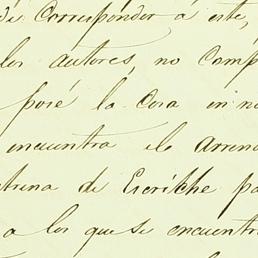 de Corresponder á este,
los autores, no Comp
poré la Cosa in no
encuentra el Arren
trina de Escriche pa
a los que se encuentra